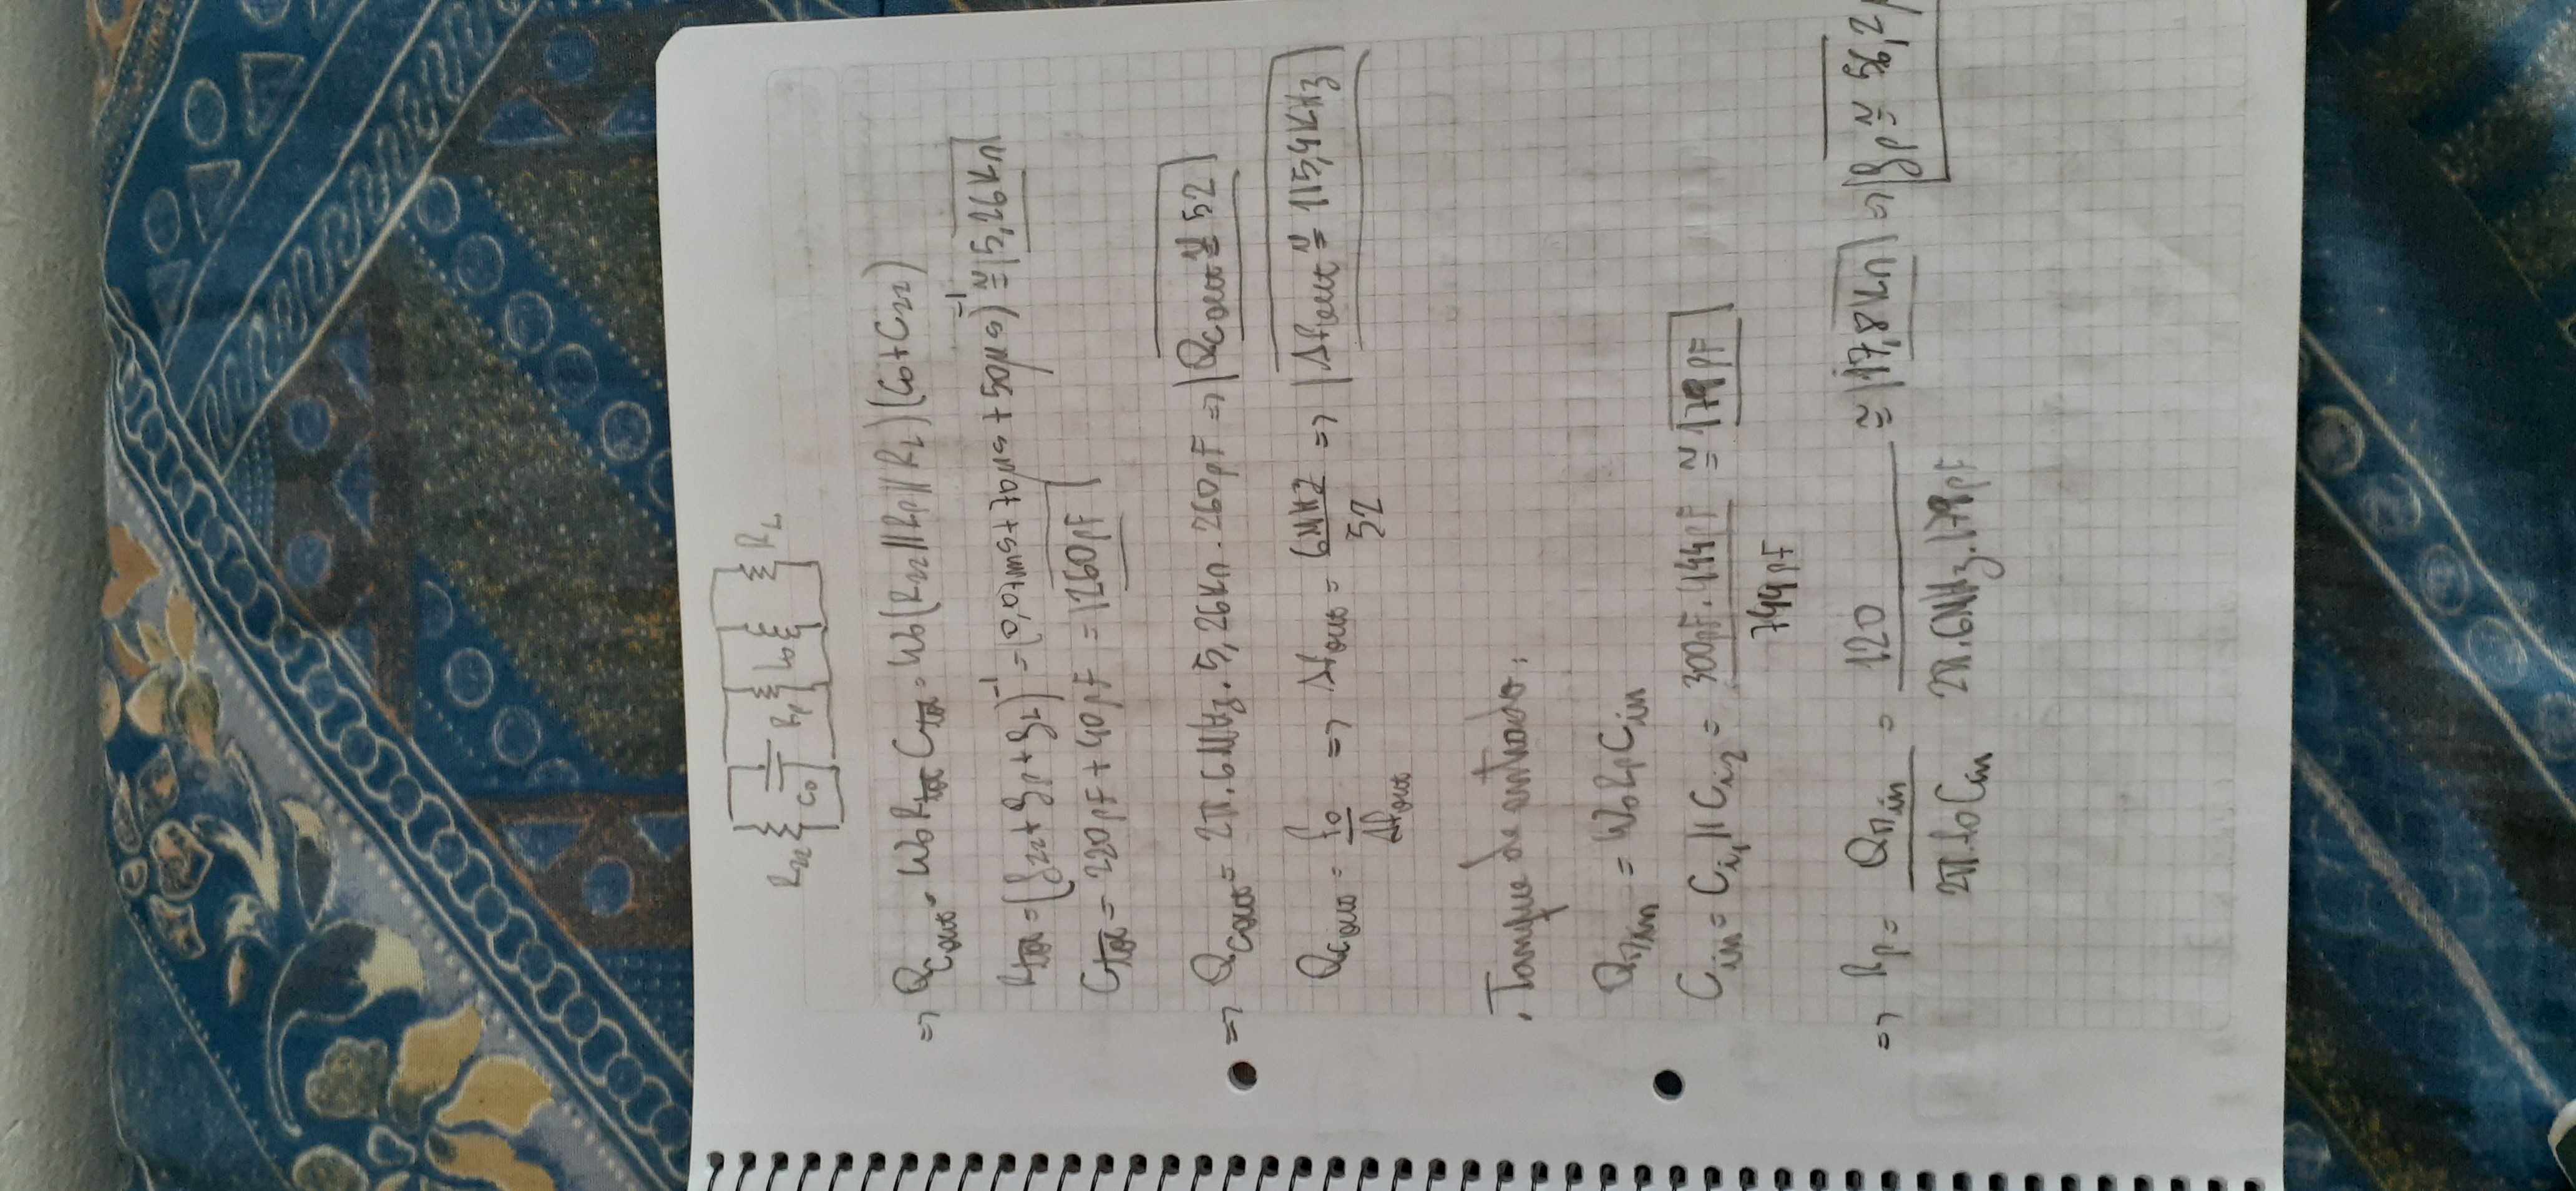 R22 C0 Rp L0 RL
=> QCout = W0 Rtot Ctot = W0 (R22 || Rp || RL) (C0 + C22)
Rtot = (g22 + gp + gL)^-1 = (0,07mS + 70µS + 50µS)^-1 ≅ 5,26KΩ
Ctot = 220pF + 40pF = 260pF
=> QCout = 2π.6MHz.5,26KΩ.260pF => QCout ≅ 52
QCout = f0/Δfout => Δfout = 6MHz/52 => Δfout ≅ 115,4KHz
. Tanque de entrada.
Qπin = W0 Rp Cin
Cin = Ci1 || Ci2 = 300pF.444pF/744pF ≅ 179pF
=> Rp = Qπin/2π.f0 Cin = 120/2π.6MHz.179pF ≅ 17,8KΩ => gp ≅ 56,2µ